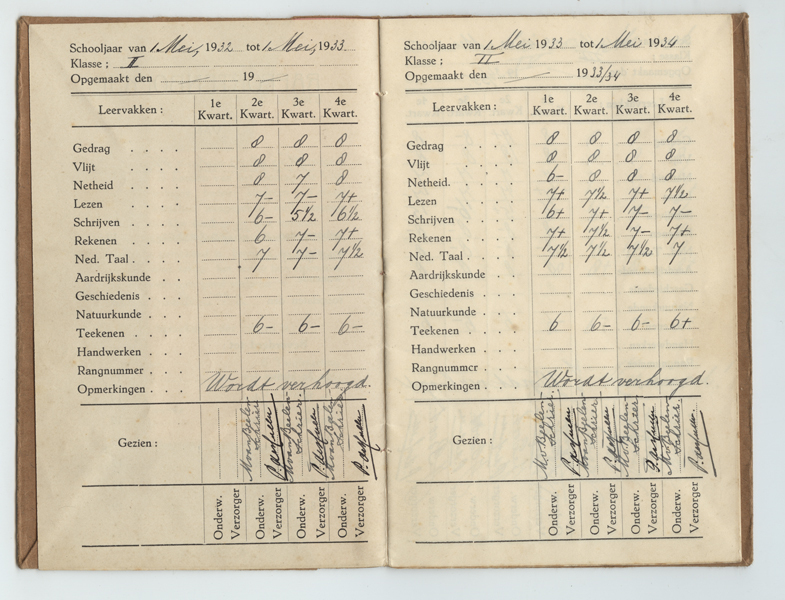 Schooljaar van 1 Mei, 1932 tot 1 Mei, 1933
Klasse ; II
Opgemaakt den 19
Leervakken : 1e Kwart. 2e Kwart. 3e Kwart. 4e Kwart.
Gedrag . . . . 8 8 8
Vlijt . . . . 8 8 8
Netheid . . . . 8 7 8
Lezen . . . . 7- 7- 7+
Schrijven . . . 6- 5 1/2 6 1/2
Rekenen . . . 6 7- 7+
Ned. Taal . . . 7 7- 7 1/2
Aardrijkskunde . .
Geschiedenis . . .
Natuurkunde . . .
Teekenen . . . 6- 6- 6-
Handwerken . . .
Rangnummer . . .
Opmerkingen . . . Wordt verhoogd.
Gezien :
Onderw. Verzorger Onderw. Verzorger Onderw. Verzorger Onderw. Verzorger
Schooljaar van 1 Mei 1933 tot 1 Mei 1934
Klasse : II
Opgemaakt den 1933/34
Leervakken : 1e Kwart. 2e Kwart. 3e Kwart. 4e Kwart.
Gedrag . . . . 8 8 8 8
Vlijt . . . . 8 8 8 8
Netheid. . . . 6- 8 8 8
Lezen . . . . 7+ 7 1/2 7+ 7 1/2
Schrijven . . . 6+ 7+ 7- 7-
Rekenen . . . 7+ 7 1/2 7- 7+
Ned. Taal . . . 7 1/2 7 1/2 7 1/2 7
Aardrijkskunde . .
Geschiedenis . . .
Natuurkunde . . .
Teekenen . . . 6 6- 6- 6+
Handwerken . . .
Rangnummer . . .
Opmerkingen . . . Wordt verhoogd.
Gezien :
Onderw. Verzorger Onderw. Verzorger Onderw. Verzorger Onderw. Verzorger